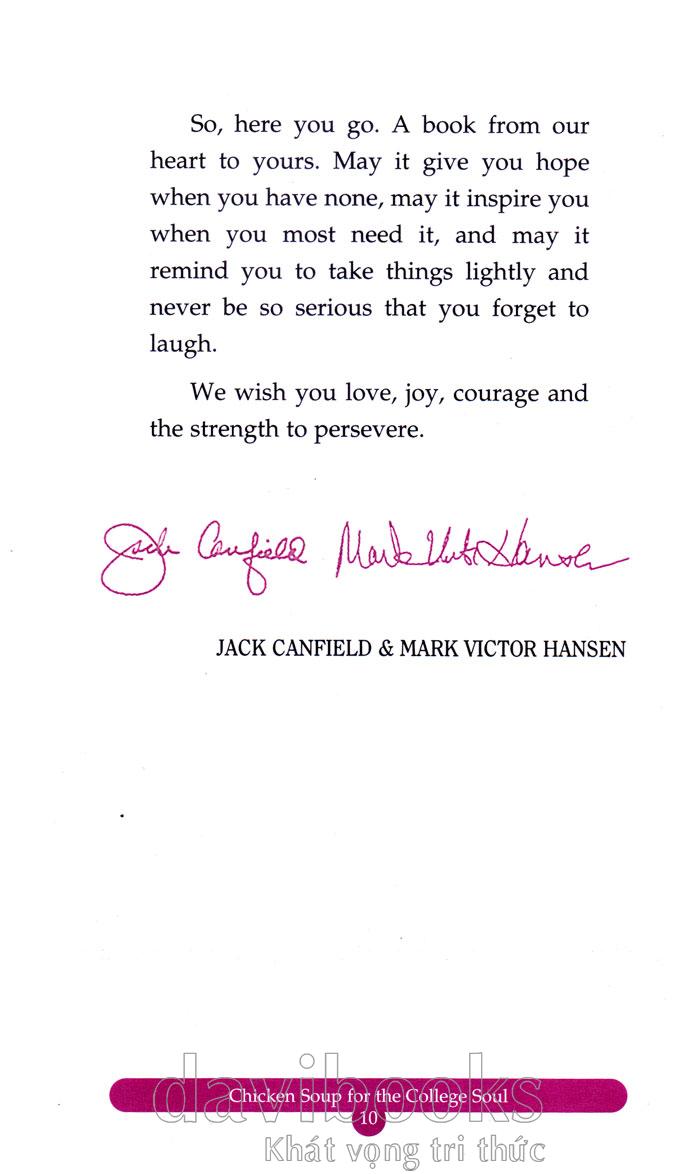 So, here you go. A book from our
heart to yours. May it give you hope
when you have none, may it inspire you
when you most need it, and may it
remind you to take things lightly and
never be so serious that you forget to
laugh.
We wish you love, joy, courage and
the strength to persevere.
Jack Canfield Mark Victor Hansen
JACK CANFIELD & MARK VICTOR HANSEN
davibooks
Chicken Soup for the College Soul
10
Khát vọng tri thức